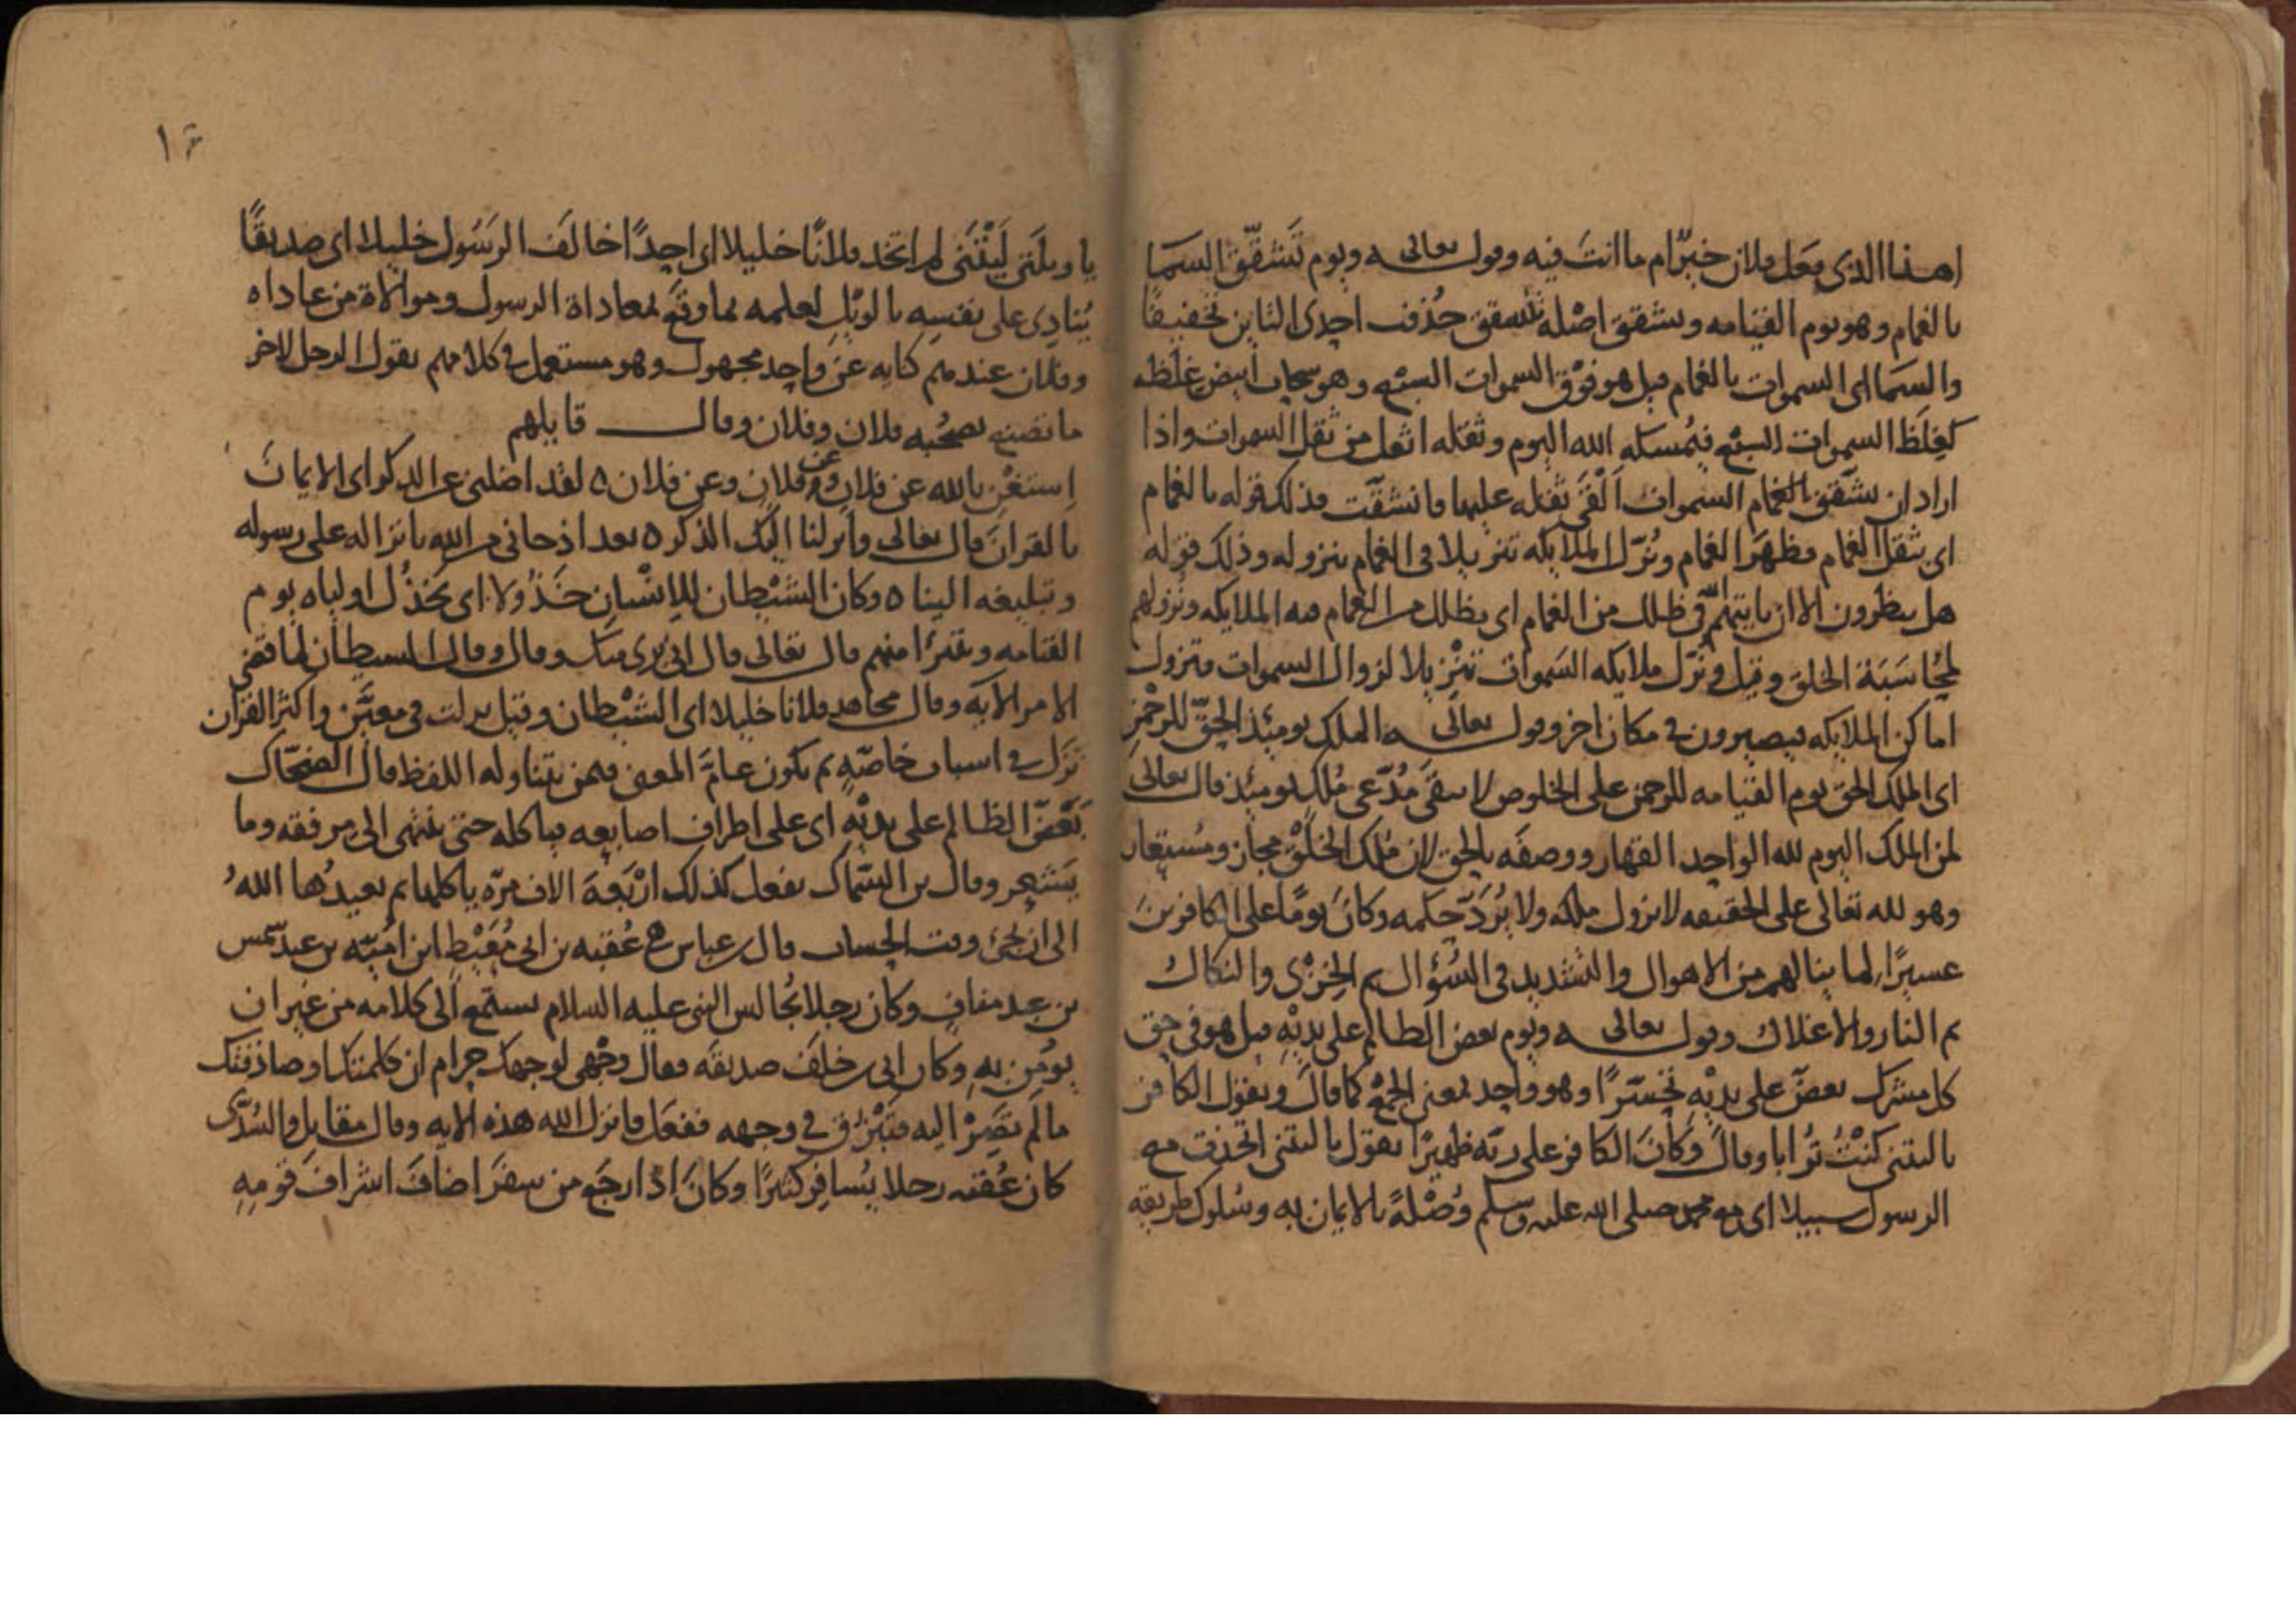 اهذا الذي يفعل فلان خير ام ما انت فيه وقوله تعالى ويوم تَشَقّق السما
بالغمام وهو يوم القيامه وتشقق اصله تتشقق حُذفت احدى التاين تخفيفًا
والسما اى السموات بالغمام قيل هو فوق السموات السبع وهو سحاب ابيض غلظه
كغِلَظ السموات السبع فيُمسكه الله اليوم وثقله اثقل من ثقل السموات واذا
اراد ان تشقق بالغمام السموات اَلْقَى ثقله عليها فانشقّت فذلك قوله بالغمام
اى بثقل الغمام فظهر الغمام ونُزّل الملايكه تنزيلا فى الغمام بنزوله وذلك قوله
هل ينظرون الا ان ياتيهم الله فى ظلل من الغمام اى بظلل من الغمام فيه الملايكه ونزولهم
لمحُاسَبَة الخلق وقيل ونزّل ملايكه السموات تنزيلا لزوال السموات فتزول
اماكن الملايكه فيصيرون فى مكان اخر وقوله تعالى الملك يومئذ الحقّ للرحمن
اى الملك الحق يوم القيامه للرحمن على الخلوص لا يبقى مُدّعى مُلك يومئذ قال تعالى
لمن الملك اليوم لله الواحد القهار ووصفه بالحق لان مُلك الخلق مجاز ومُستعار
وهو لله تعالى على الحقيقه لا يزول ملكه ولا يُرَدّ حكمه وكانَ يومًا على الكافرينَ
عسيرًا لما ينالهم من الاهوال والتشديد فى السُؤال ثم الخِزى والنكال
ثم النار والاغلال وقوله تعالى ويوم يعض الظالم على يديه قيل هو فى حق
كل مشرك يعضّ على يديه تحسّرًا وهو واحد بمعنى الجمع كما قال ويقول الكافر
ياليتنى كنتُ تُرابا وقال وَكانَ الكافر على ربّه ظهيرًا يقول ياليتنى اتخذت مع
الرسول سبيلا اى مع محمد صلى الله عليه وسلم وُصْلةً بالايمان به وسُلوك طريقه
يا ويلَتَى لَيْتَنى لم اتخذ فلانًا خليلا اى احدًا خالَفَ الرسُول خليلا اى صديقًا
يُنادى على نفسه بالويل لعلمه بما وقع لمعاداة الرسول وموالاة من عاداه
وفلان عندهم كنايه عن واحد مجهول وهو مستعمل فى كلامهم يقول الرجل لاخر
ما تصنع بصحبه فلان وفلان وقال قايلهم
اِستَغْنِ بالله عن فلانٍ وعن فلانٍ وعن فلان ٥ لقد اضلنى عن الذكر اى الايمان
بالقران قال تعالى وانزلنا اليك الذكر ٥ بعد اذ جانى من الله بانزاله على رسوله
وتبليغه الينا ٥ وكان الشيطان للانسان خَذُولا اى يخذُل اولياه يوم
القيامه ويتبرّا منهم قال تعالى قال انى برى منك وقال وقال الشيطان لما قضى
الامر الايه وقال مجاهد فلانا خليلا اى الشيطان وقيل نزلت فى معيّن واكثر القران
نَزَل فى اسباب خاصّه ثم يكون عامّ المعنى فيمن يتناوله اللفظ قال الضحّاك
يَعَضّ الظالم على يديه اى على اطراف اصابعه فياكله حتى ينتهى الى مرفقه وما
يَشعر وقال بن السّماك يفعل كذلك اربَعةَ الاف مرّه ياكلها ثم يعيدُها اللهُ
الى ان يجىَ وقت الحساب قال بن عباس هو عُقبه بن ابى مُعَيْط ابن اُميّه بن عبد شمس
بن عبد مناف وكان رجلا يُجالس النبى عليه السلام يستمع الى كلامه من غير ان
يومن به وكان ابى بن خلف صديقه فقال وجهى لوجهك حرام ان كلمتك او صادقتك
ما لَم تَصِرْ اليه فتَبْزُق فى وجهه ففعل فانزل الله هذه الايه وقال مقاتل والسُدّى
كان عُقبه رجلا يُسافر كثيرًا وكانَ اذا رجَع من سفر اضافَ اشرافَ قومه